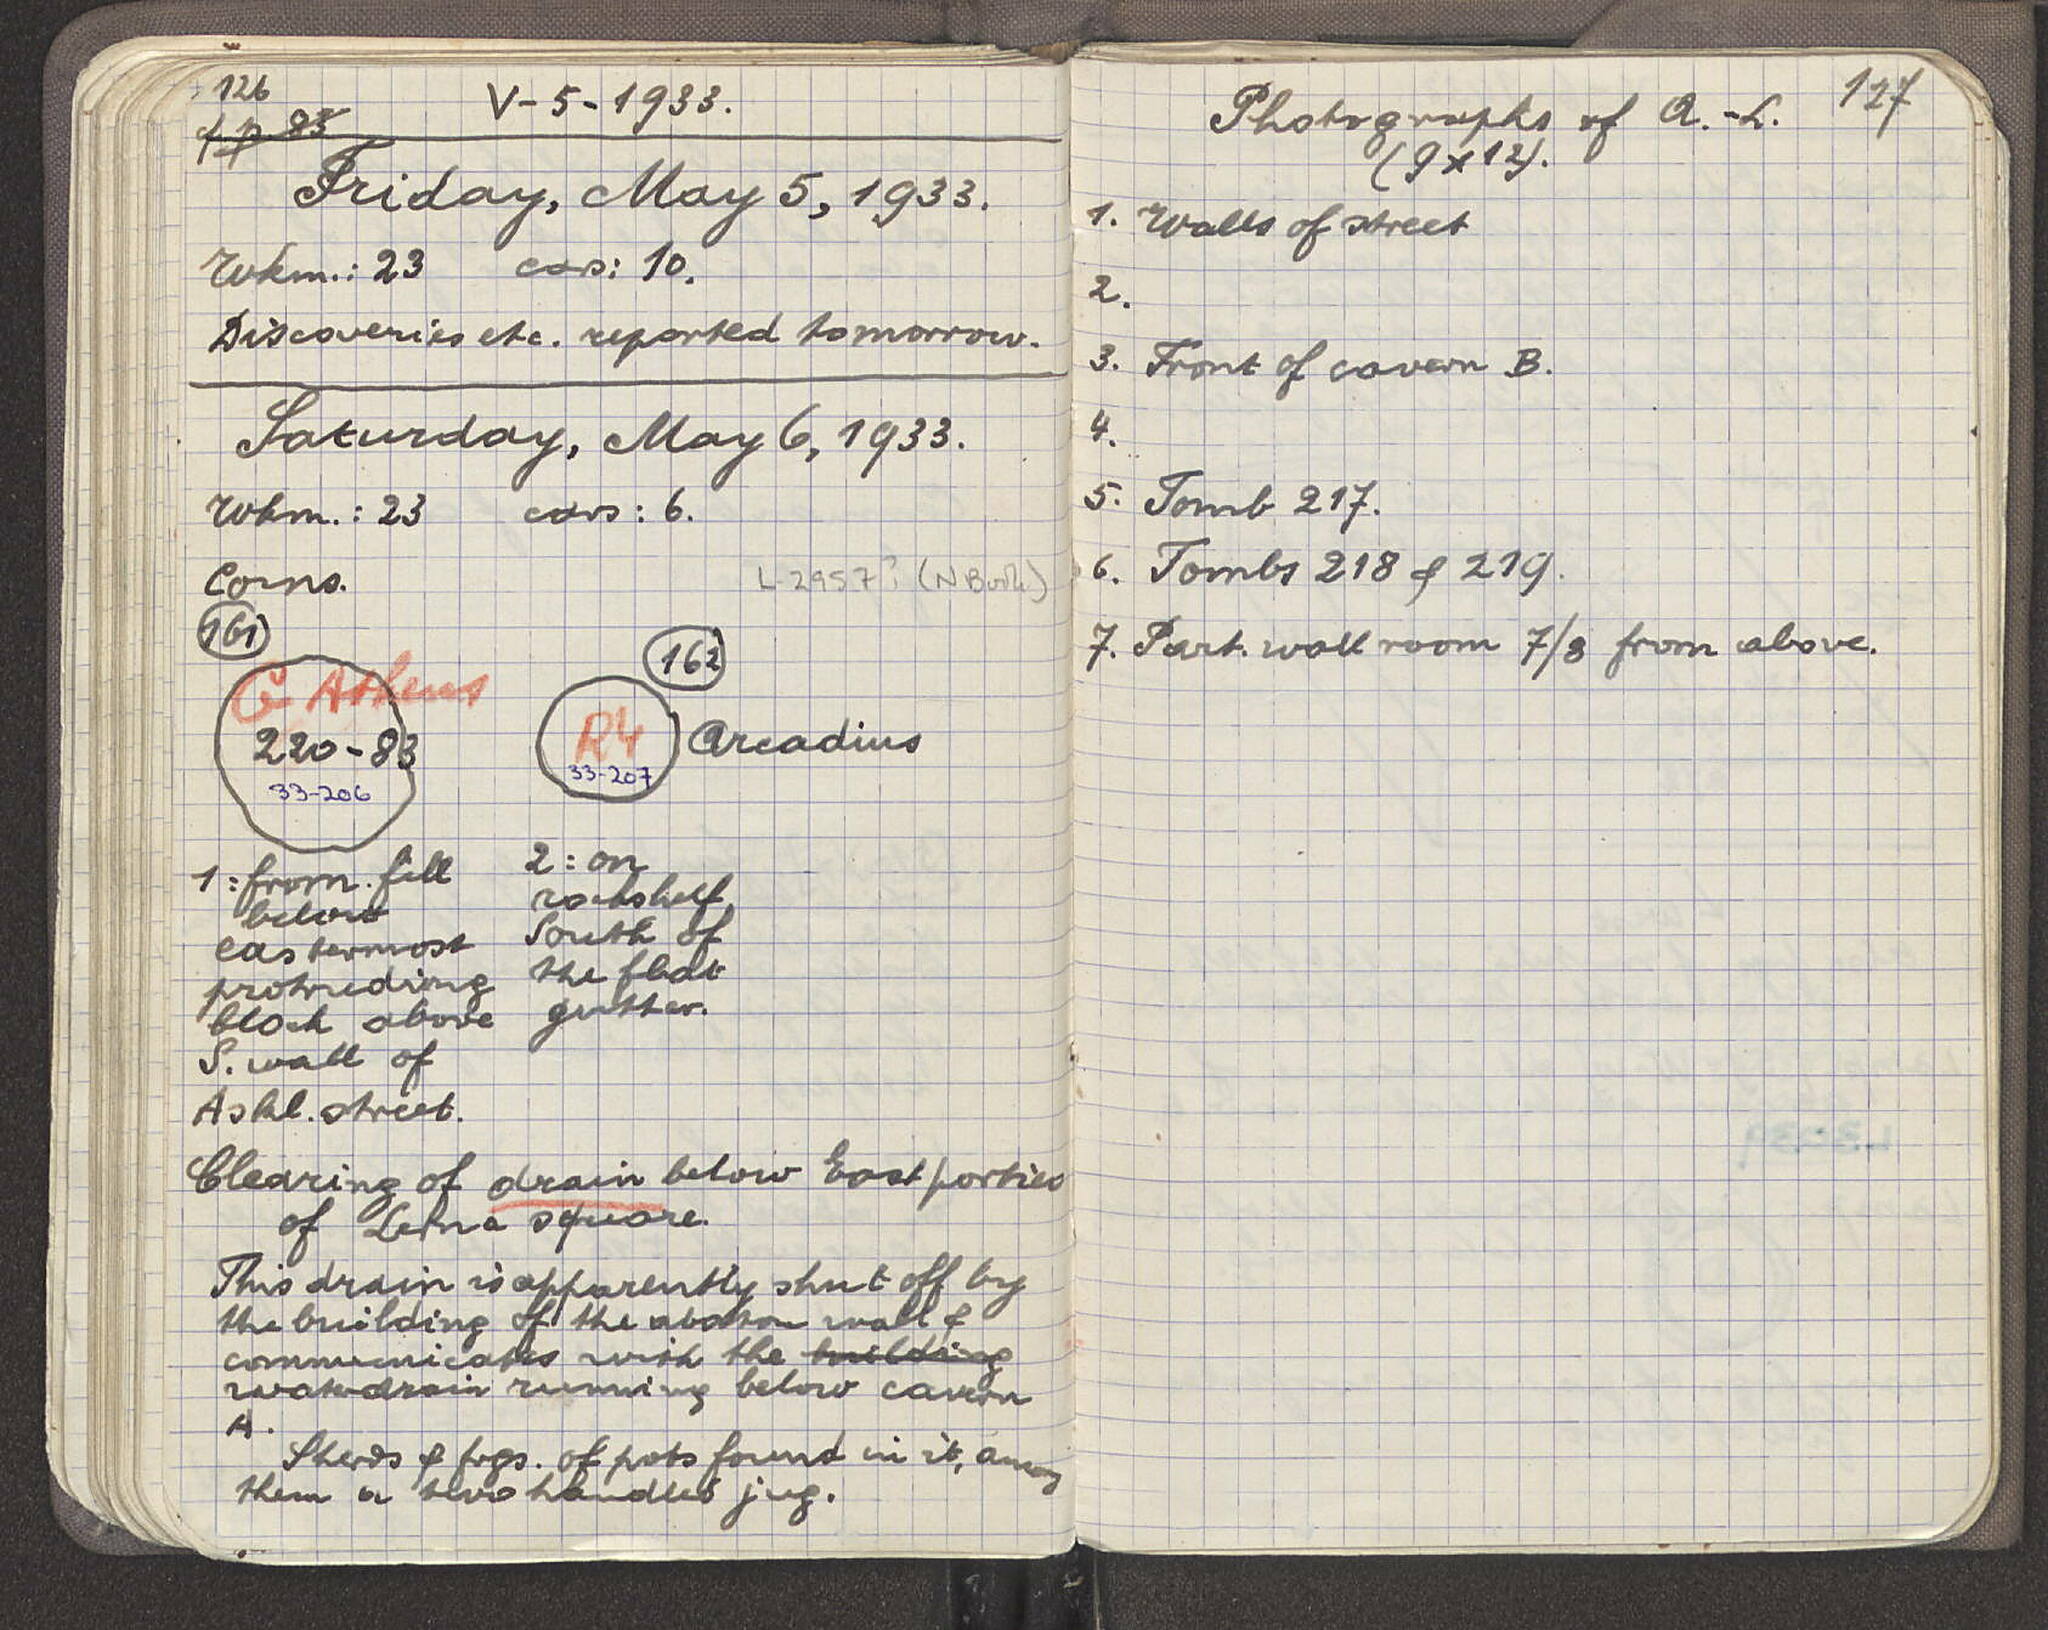 126
V-5-1933.
cf p. 83
Friday, May 5, 1933.
Wkm.: 23 cars: 10.
Discoveries etc. reported tomorrow.
Saturday, May 6, 1933.
Wkm.: 23 cars: 6.
Coins.
L-2957? (N Book)
161
162
G Athens
220-83
33-206
R4
33-207
Arcadius
1: from fill
below
easternmost
protruding
block above
S. wall of
Askl. street.
2: on
rockshelf
South of
the flat
gutter.
Clearing of drain below East portico
of Lerna square.
This drain is apparently shut off by
the building of the abaton wall &
communicates with the building
waterdrain running below cavern
A.
Sherds & frgs. of pots found in it, among
them a two handled jug.
127
Photographs of A.-L.
(9x12).
1. Walls of street
2.
3. Front of cavern B.
4.
5. Tomb 217.
6. Tombs 218 & 219.
7. Part. wall room 7/8 from above.